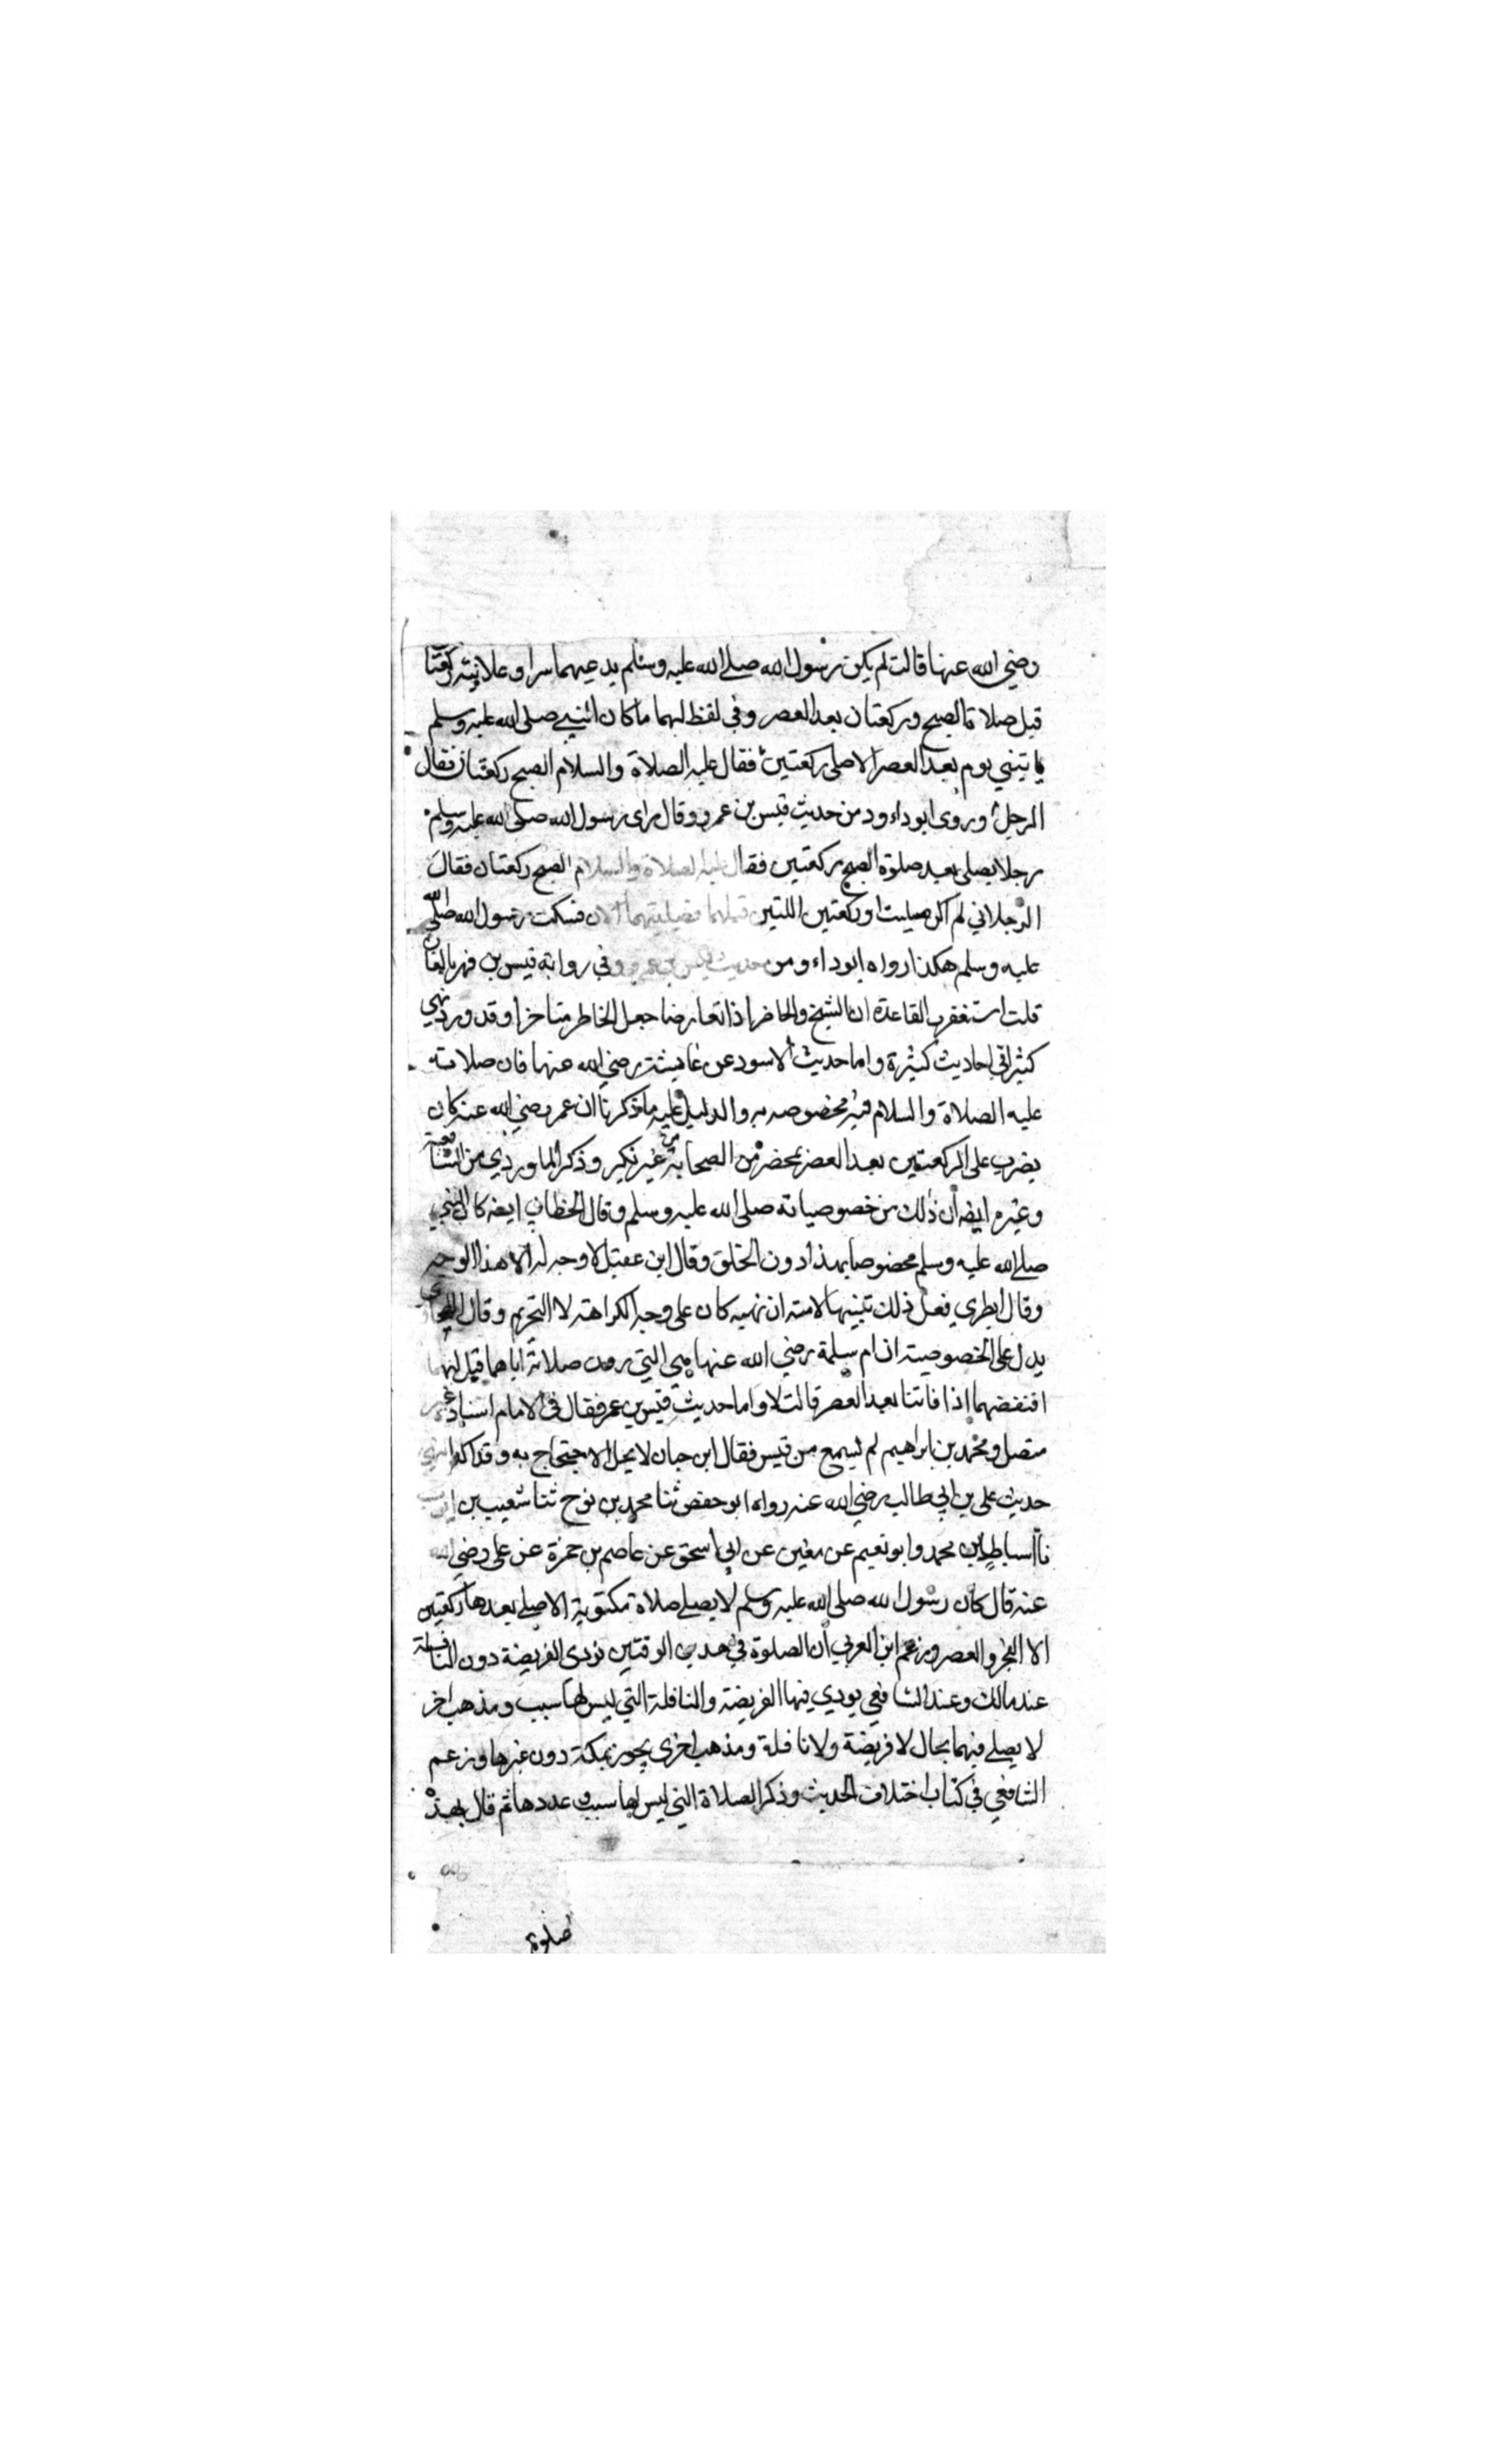 رضي الله عنها قالت لم يكن رسول الله صلى الله عليه وسلم يدعهما سرا وعلانية ركعتا
قبل صلاة الصبح وركعتان بعد العصر وفي لفظ لهما ما كان النبي صلى الله عليه وسلم
ياتيني يوم بعد العصر الا صلى ركعتين فقال عليه الصلاة والسلام الصبح ركعتان فقال
الرجل وروى ابو داود من حديث قيس بن عمرو وقال راى رسول الله صلى الله عليه وسلم
رجلا يصلى بعد صلوة الصبح ركعتين فقال عليه الصلاة والسلام الصبح ركعتان فقال
الرجل اني لم اكن صليت اوركعتين اللتين قبلهما فصليتهما الان فسكت رسول الله صلى الله
عليه وسلم هكذا رواه ابو داء ومن حديث قيس بن عمرو وفي رواية قيس بن فهر بالقاف
قلت استقفرب القاعدة ان الشيخ والحاضر اذا تعارضا جعل الخاطر متاخرا وقد ورد نهي
كثير اقي احاديث كثيرة واما حديث الاسود عن عايشة رضي الله عنها فان صلاته
عليه الصلاة والسلام فيه مخصوصه به والدليل عليه ما ذكرنا ان عمر رضي الله عنه كان
يضرب على الركعتين بعد العصر بمحضر من الصحابة من غير نكير وذكر الماوردي من الشافعية
وغيره ايضه ان ذلك من خصوصياته صلى الله عليه وسلم وقال الخطابي ايضه كان النبي
صلى الله عليه وسلم مخصوصا بهذا دون الخلق وقال ابن عقيل لا وجه له الا هذا الوجه
وقال ابطري فعل ذلك تنبيها لامته ان نهيه كان على وجه الكراهة لا التحريم وقال الطحاوي
يدل على الخصوصية ان ام سلمة رضي الله عنها هي التي روت صلاته اياهما قيل لها
افنقضهما اذا فاتتنا بعد العصر قالت لا واما حديث قيس بن عمر فقال في الامام اسناد غير
متصل ومحمد بن ابراهيم لم يسمع من قيس فقال ابن حبان لا يحل الاحتجاج به وقد اكد النهي
حديث على بن ابي طالب رضي الله عنه رواه ابو حفص ثنا محمد بن نوح ثنا شعيب بن ايوب
نا اسباط بن محمد وابو نعيم عن معين عن ابي اسحق عن عاصم بن حمزة عن على رضي الله
عنه قال كان رسول الله صلى الله عليه وسلم لا يصلي صلاة مكتوبة الا صلي بعدها ركعتين
الا الفجر والعصر وزعم ابن العربي أن الصلوة في هدى الوقتين تودى الفريضة دون النافلة
عند مالك وعند الشافعي يودي فيها الفريضة والنافلة التي ليس لها سبب ومذهب اخر
لا يصلي فيهما بحال لا فريضة ولا نافلة ومذهب اخرى يجوز بمكة دون غيرها وزعم
الشافعي في كتاب اختلاف الحديث وذكر الصلاة التي ليس لها سبب وعددها ثم قال بهذه
صلوة